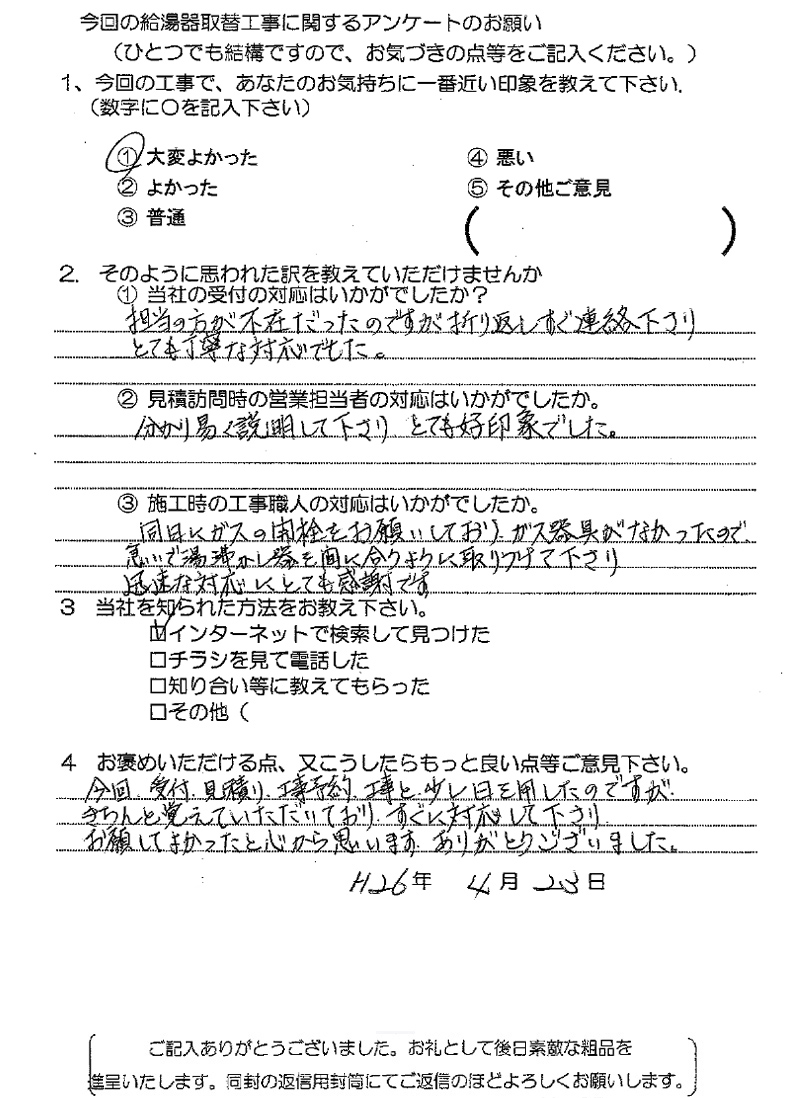 今回の給湯器取替工事に関するアンケートのお願い
（ひとつでも結構ですので、お気づきの点等をご記入ください。）
1、今回の工事で、あなたのお気持ちに一番近い印象を教えて下さい.
（数字に〇を記入下さい）
① 大変よかった
② よかった
③ 普通
④ 悪い
⑤ その他ご意見
（ ）
2. そのように思われた訳を教えていただけませんか
① 当社の受付の対応はいかがでしたか？
担当の方が不在だったのですが折り返しすぐ連絡下さり
とても丁寧な対応でした。
② 見積訪問時の営業担当者の対応はいかがでしたか。
分かり易く説明して下さり とても好印象でした。
③ 施工時の工事職人の対応はいかがでしたか。
同日にガスの開栓をお願いしており ガス器具がなかったので、
急いで湯沸かし器を間に合うように取りつけて下さり
迅速な対応にとても感謝です
3 当社を知られた方法をお教え下さい。
☑インターネットで検索して見つけた
□チラシを見て電話した
□知り合い等に教えてもらった
□その他（
4 お褒めいただける点、又こうしたらもっと良い点等ご意見下さい。
今回、受付、見積り、工事予約、工事と少し日を用したのですが
きちんと覚えていただいており すぐに対応して下さり
お願してよかったと心から思います ありがとうございました。
H26年 4月 23日
ご記入ありがとうございました。お礼として後日素敵な粗品を
進呈いたします。同封の返信用封筒にてご返信のほどよろしくお願いします。